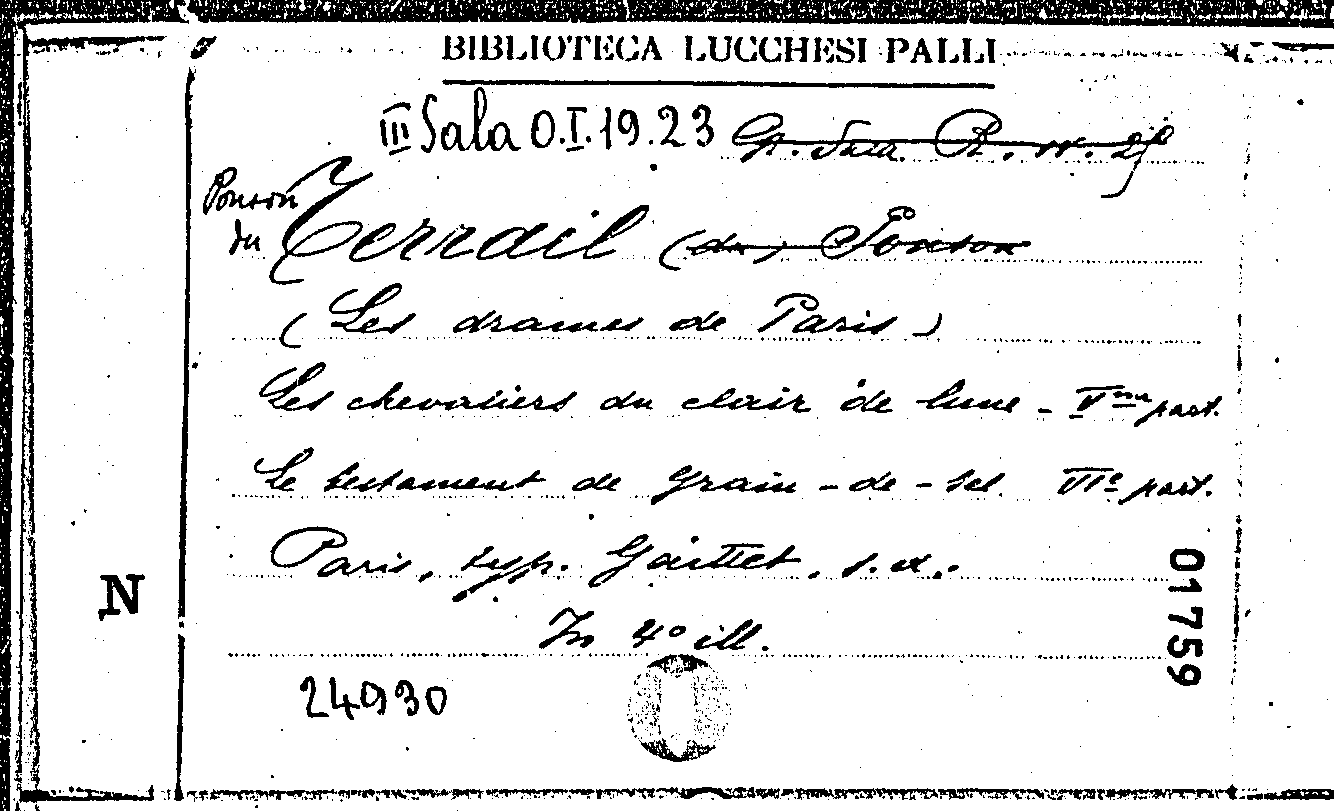 BIBLIOTECA LUCCHESI PALLI
III Sala O.I.19.23
Ponson
du Terrail (du) Ponson
(Les drames de Paris)
Les chevaliers du clair de lune - Vme part.
Le testament de Grain-de-sel VIe part.
Paris, typ. Gaittet, s.d.
In 4° ill.
24930
N
01759